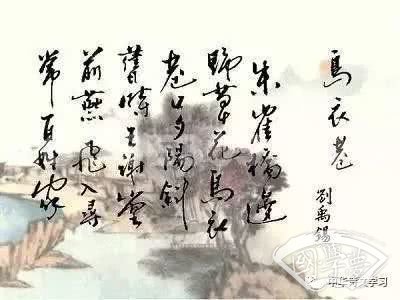 烏衣巷
劉禹錫
朱雀橋邊
野草花烏衣
巷口夕陽斜
舊時王謝堂
前燕飛入尋
常百姓家
中华诗文学习